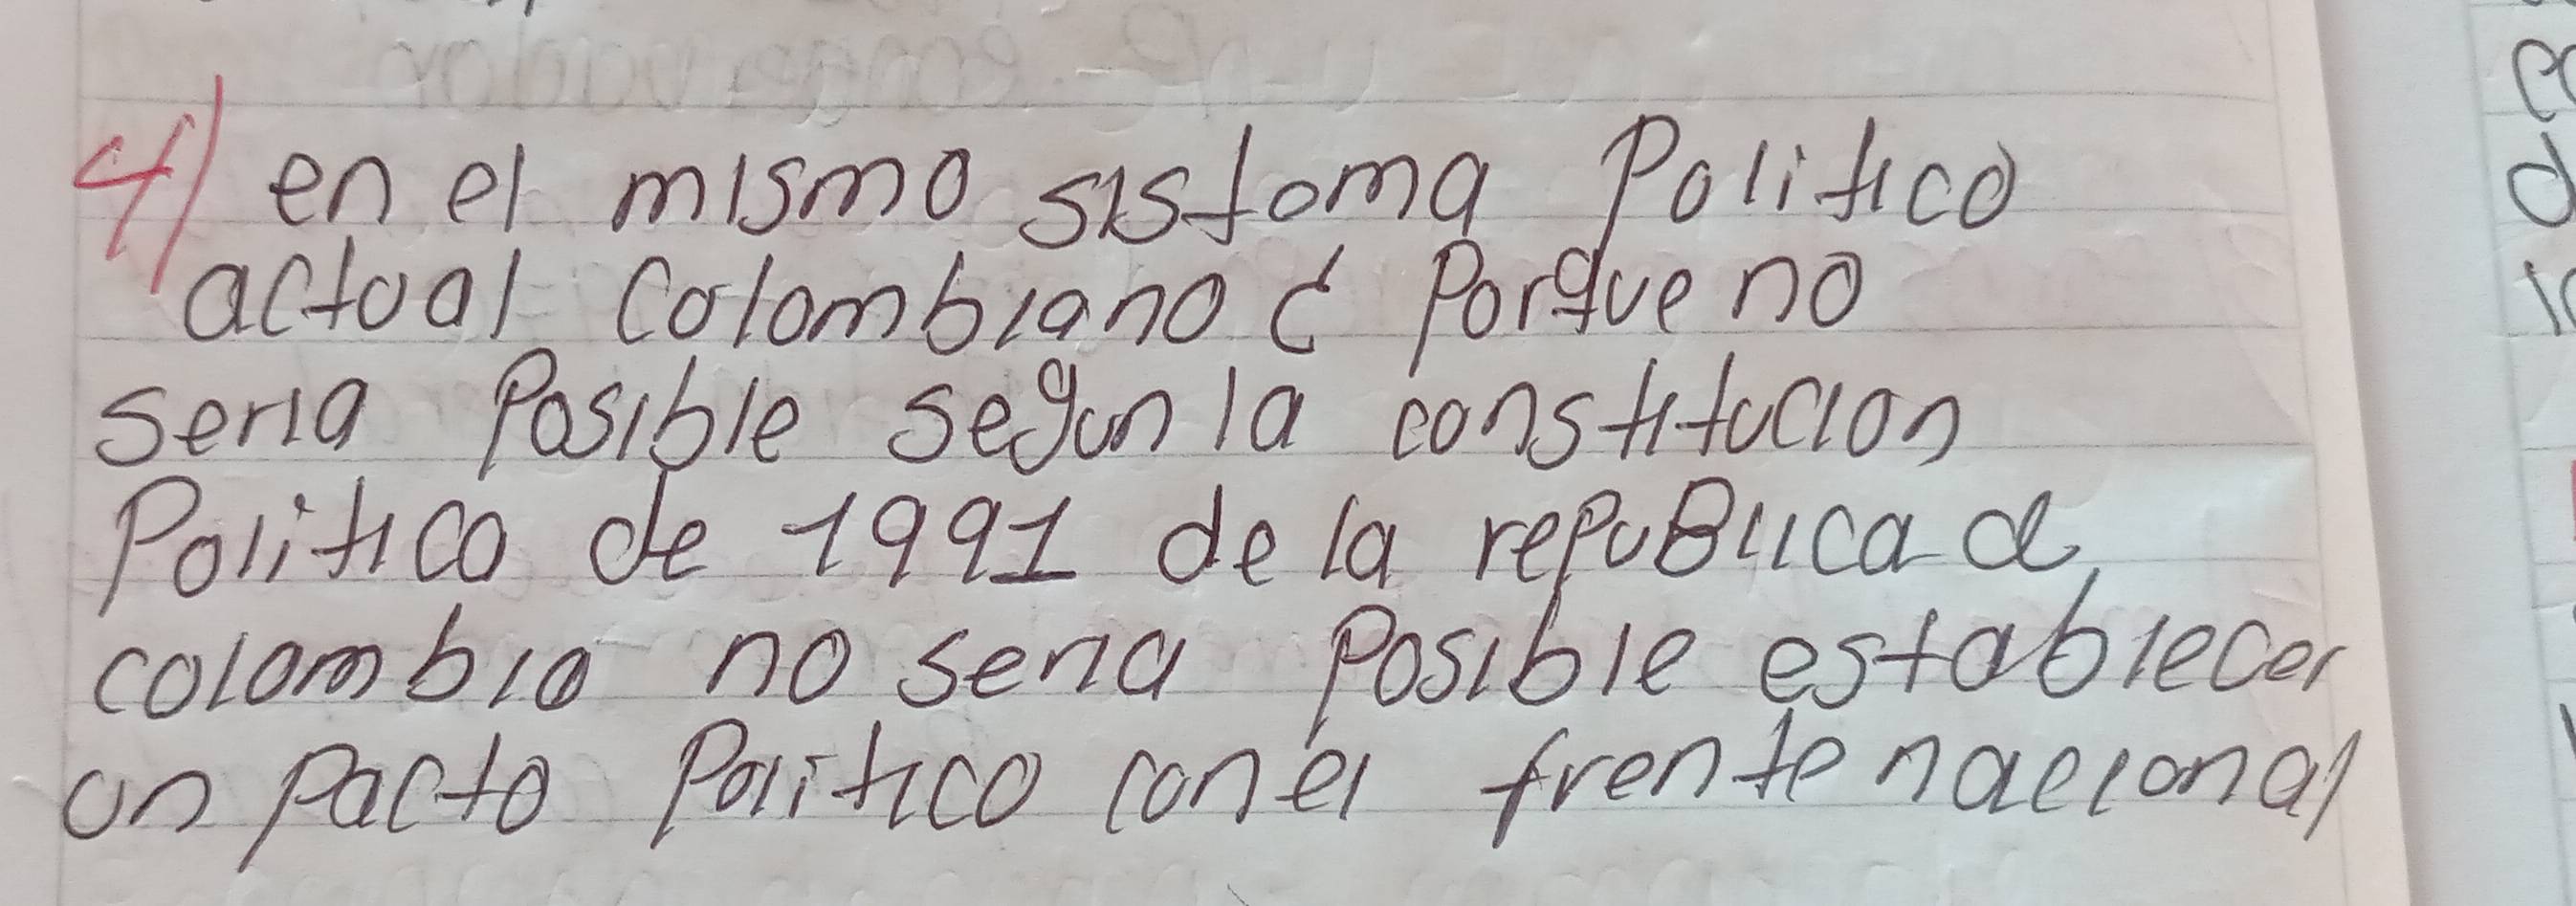 4) en el mismo sistoma Politico
actual Colombiano ¿ Porque no
seria Posible segun la constitucion
Politico de 1991 de la repuBlica d
colombia no seria Posible establecer
un Pacto Politico con el frente nacional